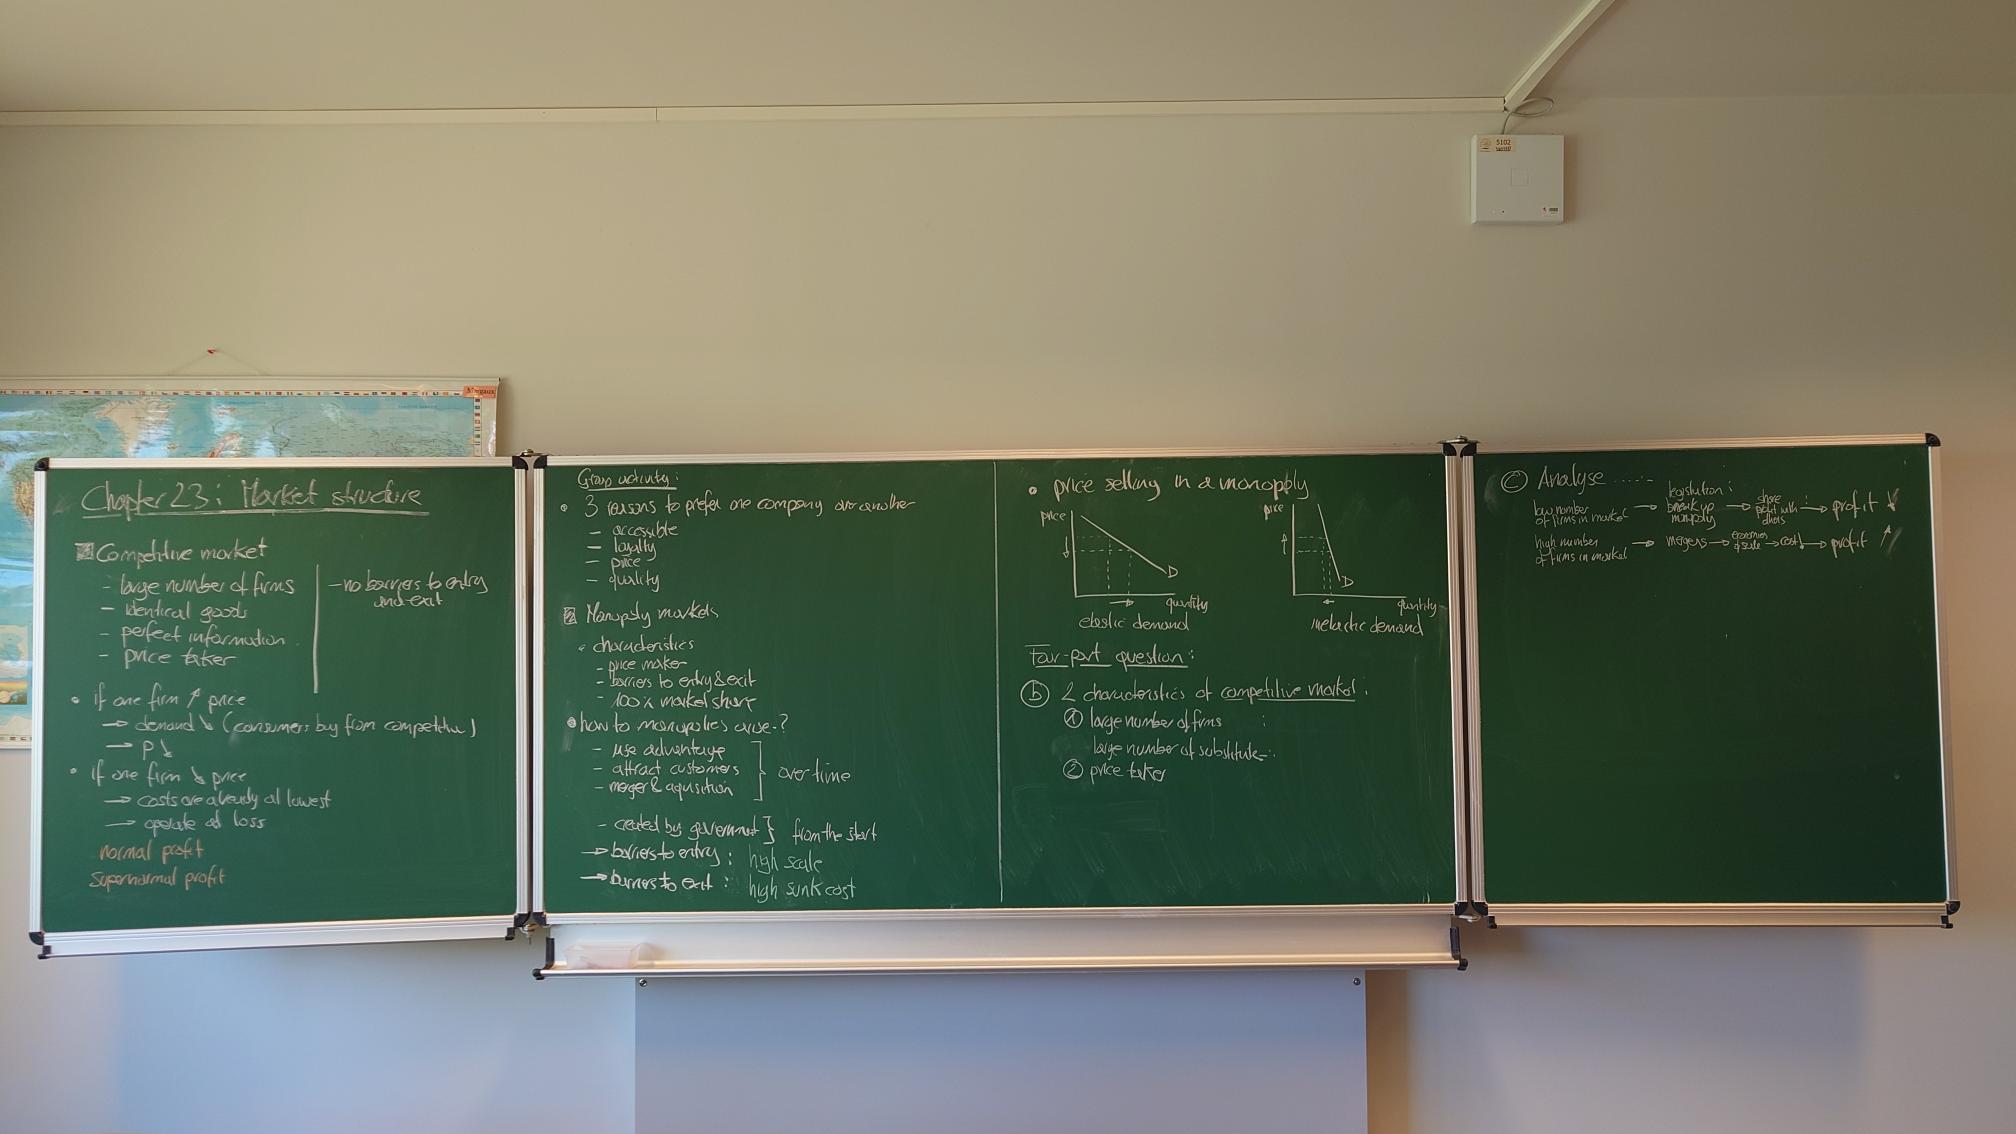 Chapter 23: Market structure
Competitive market
- large number of firms
- identical goods
- perfect information
- price taker
- no barriers to entry
and exit
• if one firm ↑ price
→ demand ↘ (consumers buy from competitive)
→ P ↓
• if one firm ↘ price
→ costs are already at lowest
→ operate at loss
normal profit
supernormal profit
Group activity:
• 3 reasons to prefer one company over another
- accessible
- loyalty
- price
- quality
Monopoly markets
• characteristics
- price maker
- barriers to entry & exit
- 100% market share
• how to monopolies arise?
- use advantage
- attract customers
- merger & aquisition
} over time
- created by government } from the start
→ barriers to entry: high scale
→ barriers to exit: high sunk cost
• price selling in a monopoly
price
D
quantity
elastic demand
price
D
quantity
inelastic demand
Four-part question:
b 2 characteristics of competitive market:
1 large number of firms :
large number of substitute
2 price taker
c Analyse ......
low number
of firms in market → legislution:
break up
monopoly → share
profit with
others → profit ↓
high number
of firms in market → mergers → economies
of scale → cost↓ → profit ↑
5102